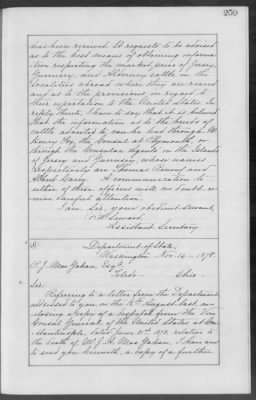 250
has been received. It requests to be advised
as to the best means of obtaining informa-
tion respecting the market price of Jersey,
Guernsey, and Alderney cattle in the
localities abroad where they are reared
and as to the provisions in regard to
their exportation to the United States. In
reply thereto, I have to say that it is believed
that the information as to the breeds of
cattle adverted to, can be had through Mr.
Henry Fox, the Consul at Plymouth, or
through the Consular Agents in the Islands
of Jersey and Guernsey, whose names
respectively are Thomas Renouf and
Albert Carey. A communication to
either of these officers will no doubt re-
ceive careful attention.
I am, Sir, your obedient servant,
F. W. Seward,
Assistant Secretary
Department of State,
Washington Nov. 14 - 1878.
P. J. Mac Gahan, Esqr.
Toledo - Ohio -
Sir:
Referring to a letter from the Department
addressed to you on the August last, en-
closing a copy of a despatch from the Vice
Consul General of the United States at Con-
stantinople, dated June 21st 1878. relative
to the death of Mr. J. A. Mac Gahan, I have now
to send you herewith, a copy of a further